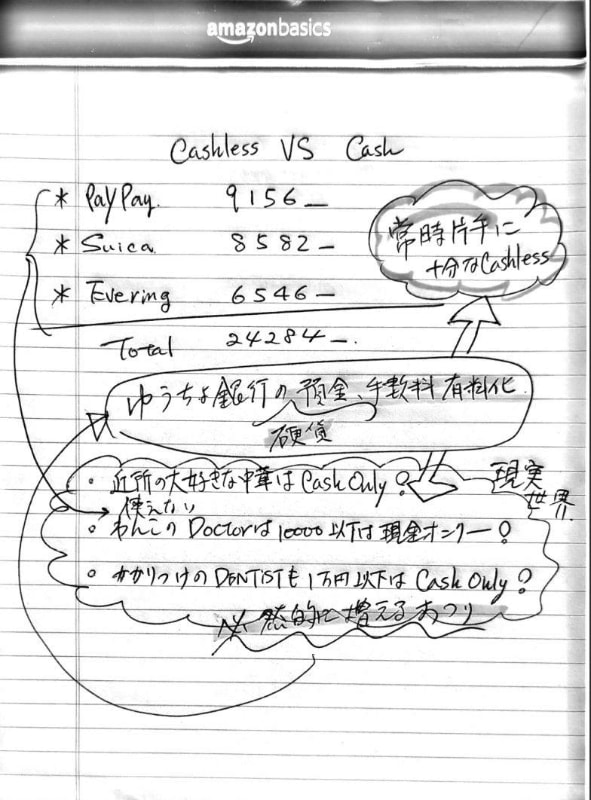 amazonbasics
Cashless VS Cash
* PayPay. 9156 —
* Suica 8582 —
* Evering 6546 —
Total 24284 —.
常時片手に
十分なCashless
ゆうちょ銀行の預金、手数料有料化
硬貨
現実
世界
• 近所の大好きな中華はCash Only?
使えない
• わんこのDoctorは10000以下は現金オンリー?
• かかりつけのDENTISTも1万円以下はCash Only?
必然的に増えるおつり